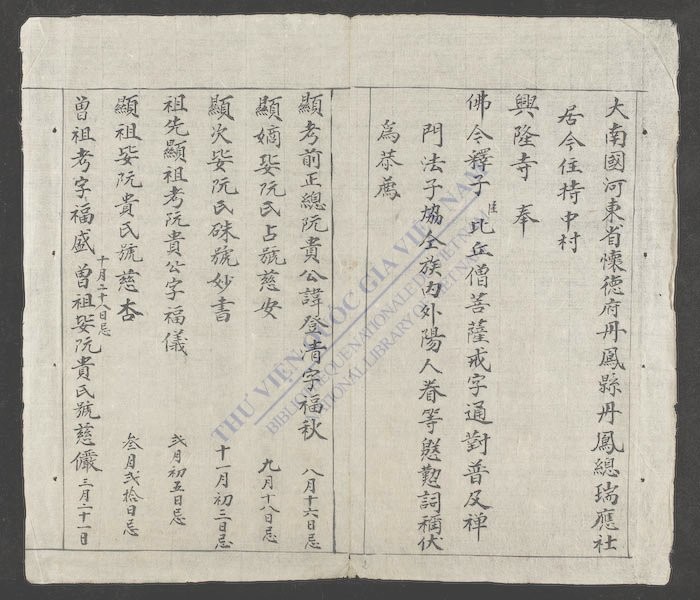 大南國河東省懷德府丹鳳縣丹鳳總瑞應社
居今住持中村
興隆寺 奉
佛今釋子比丘僧菩薩戒字通對普及禅
門法子協仝族内外陽人眷等懇懃詞稱伏
為恭薦
顯考前正總阮貴公諱登清字福秋 八月十六日忌
顯嫡妣阮氏占號慈安 九月十八日忌
顯次妣阮氏硃號妙書 十一月初三日忌
祖先顯祖考阮貴公字福儀 弍月初五日忌
顯祖妣阮貴氏號慈杏 叁月弍拾日忌
曾祖考字福盛 十月二十八日忌 曾祖妣阮貴氏號慈儼 三月二十一日
THƯ VIỆN QUỐC GIA VIỆT NAM
BIBLIOTHEQUE NATIONALE DU VIETNAM
NATIONAL LIBRARY OF VIETNAM